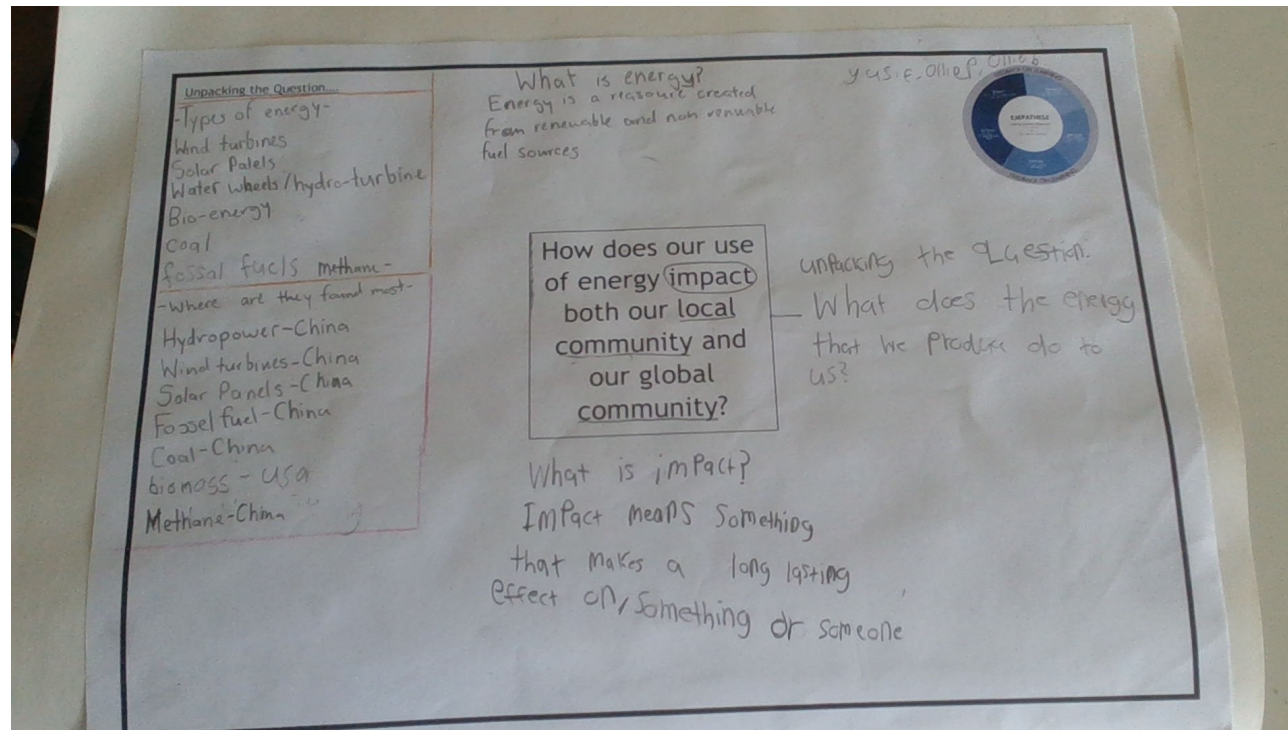 Unpacking the Question....
-Types of energy-
Wind turbines
Solar Palels
Water wheels/hydro-turbine
Bio-energy
Coal
fossal fuels methane-
-Where are they found most-
Hydropower-China
Wind turbines-China
Solar Panels-China
Fossel fuel-China
Coal-China
biomass - USA
Methane-China
What is energy?
Energy is a reasource created
from renewable and non renuable
fuel sources
EMPATHISE
How does our use
of energy impact
both our local
community and
our global
community?
unpacking the Question.
What does the energy
that we produce do to
us?
What is impact?
Impact means something
that makes a long lasting
effect on, something or someone